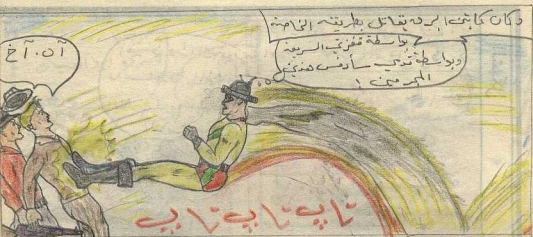 وكان كابتن البرق يقاتل بطريقته الخاصة
بواسطة قفزتي السريعة
وبواسطة قدمي سأرفس هذين
المجرمين !
آن. آخ
تاپ تاپ تاپ